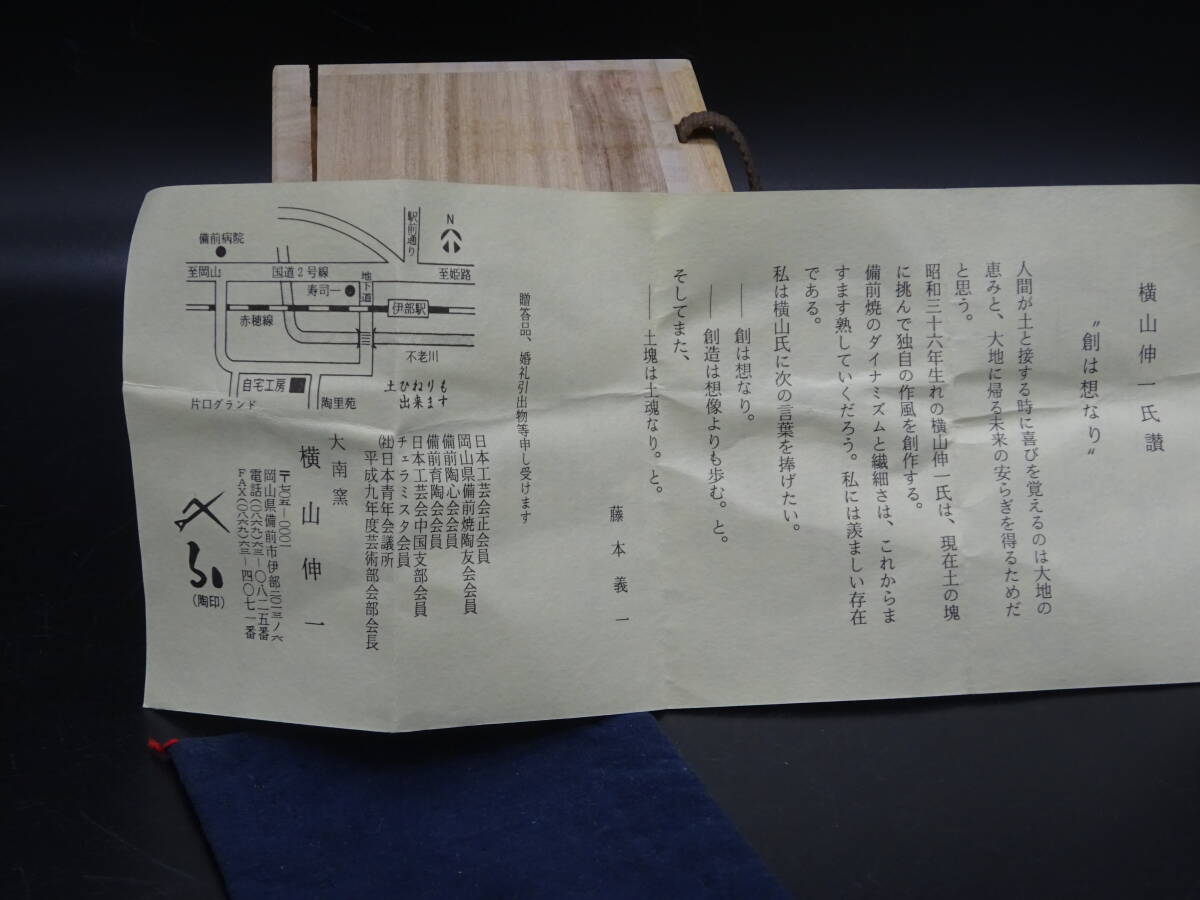 横山伸一氏讃
〝創は想なり〟
人間が土と接する時に喜びを覚えるのは大地の
恵みと、大地に帰る未来の安らぎを得るためだ
と思う。
昭和三十六年生れの横山伸一氏は、現在土の塊
に挑んで独自の作風を創作する。
備前焼のダイナミズムと繊細さは、これからま
すます熟していくだろう。私には羨ましい存在
である。
私は横山氏に次の言葉を捧げたい。
――創は想なり。
――創造は想像よりも歩む。と。
そしてまた、
――土塊は土魂なり。と。
藤本義一
贈答品、婚礼引出物等申し受けます
日本工芸会正会員
岡山県備前焼陶友会会員
備前陶心会会員
備前育陶会会員
日本工芸会中国支部会員
チェラミスタ会員
(社)日本青年会議所
平成九年度芸術部会部会長
大南窯
横山伸一
〒七〇五-〇〇〇一
岡山県備前市伊部二〇一三ノ六
電話(〇八六九)六三-〇八二五番
FAX(〇八六九)六三-四〇七一番
(陶印)
N
駅前通り
備前病院
至岡山
国道2号線
地下道
至姫路
寿司一
伊部駅
赤穂線
不老川
自宅工房
土ひねりも
出来ます
片口グランド
陶里苑